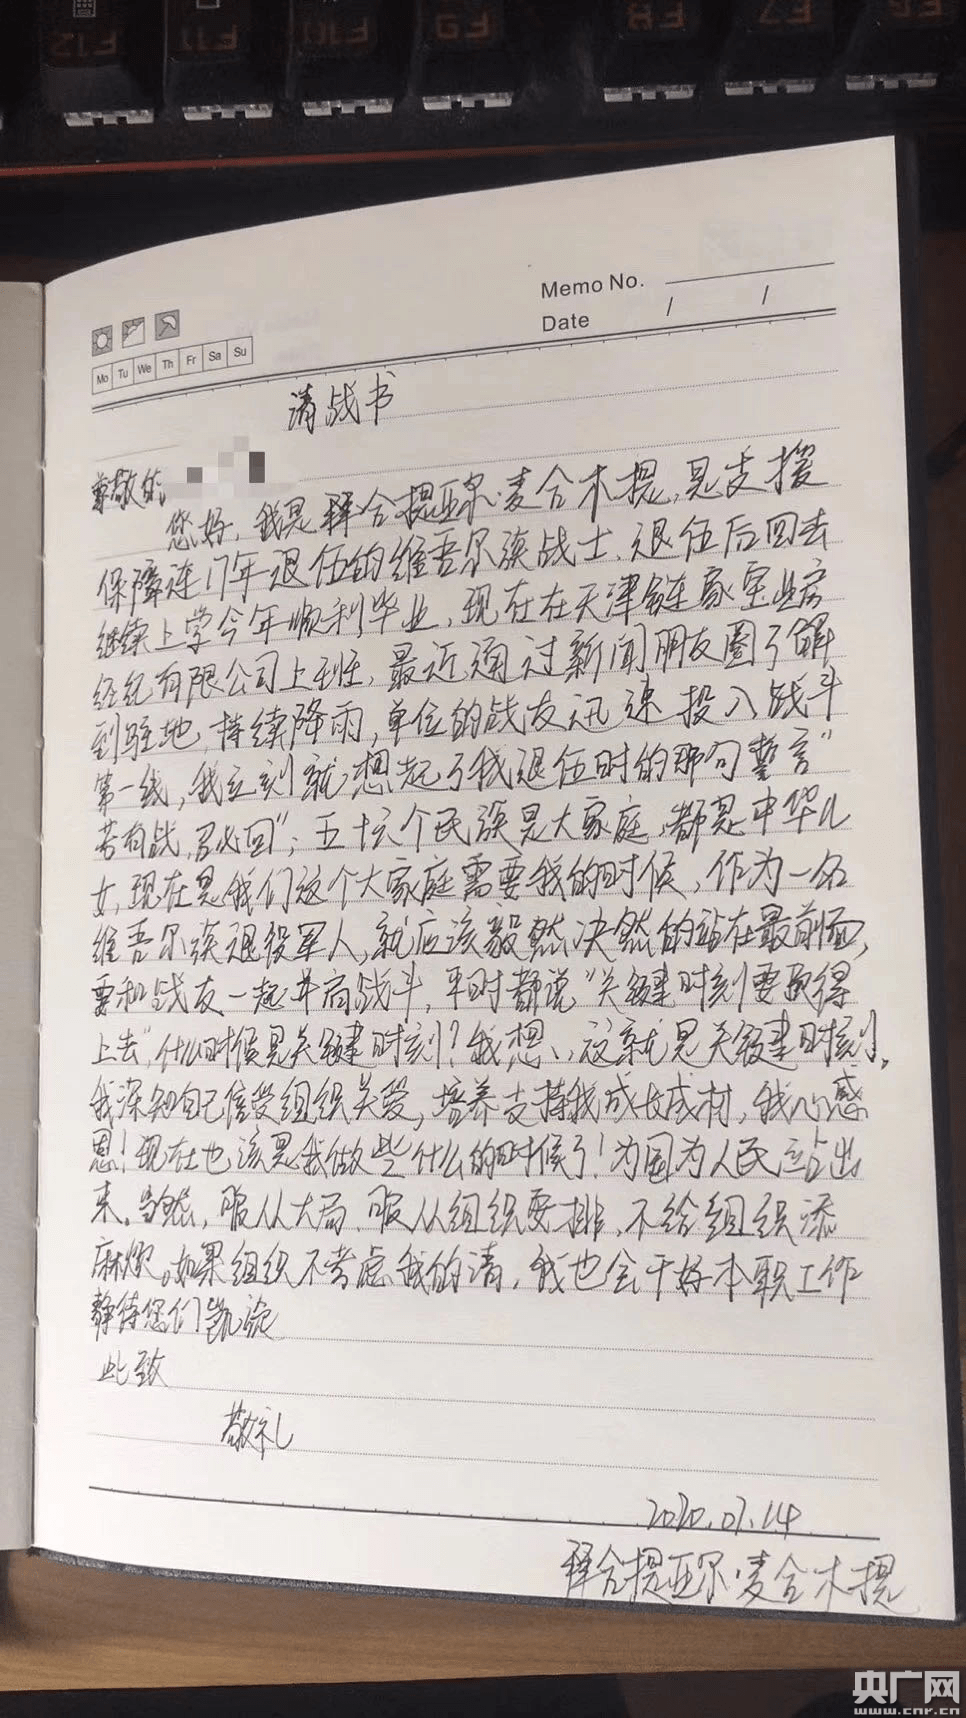 F12 F11 F10 F9 F8 F7 F6
Memo No.
Date / /
Mo Tu We Th Fr Sa Su
请战书
尊敬的
您好,我是拜合提亚尔·麦合木提,是支援
保障连17年退伍的维吾尔族战士、退伍后回去
继续上学今年顺利毕业,现在在天津链家宝业房
经纪有限公司上班,最近通过新闻朋友圈了解
到驻地,持续降雨,单位的战友迅速投入战斗
第一线,我立刻就想起了我退伍时的那句誓言“
若有战,召必回”;五十六个民族是大家庭,都是中华儿
女,现在是我们这个大家庭需要我的时候,作为一名
维吾尔族退役军人,就应该毅然决然的站在最前面,
要和战友一起并肩战斗,平时都说“关键时刻要顶得
上去”,什么时候是关键时刻?我想、、这就是关键时刻。
我深知自己倍受组织关爱,培养支持我成长成材,我心感
恩!现在也该是我做些什么的时候了!为国为人民站出
来。当然,服从大局、服从组织安排,不给组织添
麻烦。如果组织不考虑我的请,我也会干好本职工作
静待您们凯旋
此致
敬礼
2020.07.14
拜合提亚尔·麦合木提
央广网
www.cnr.cn